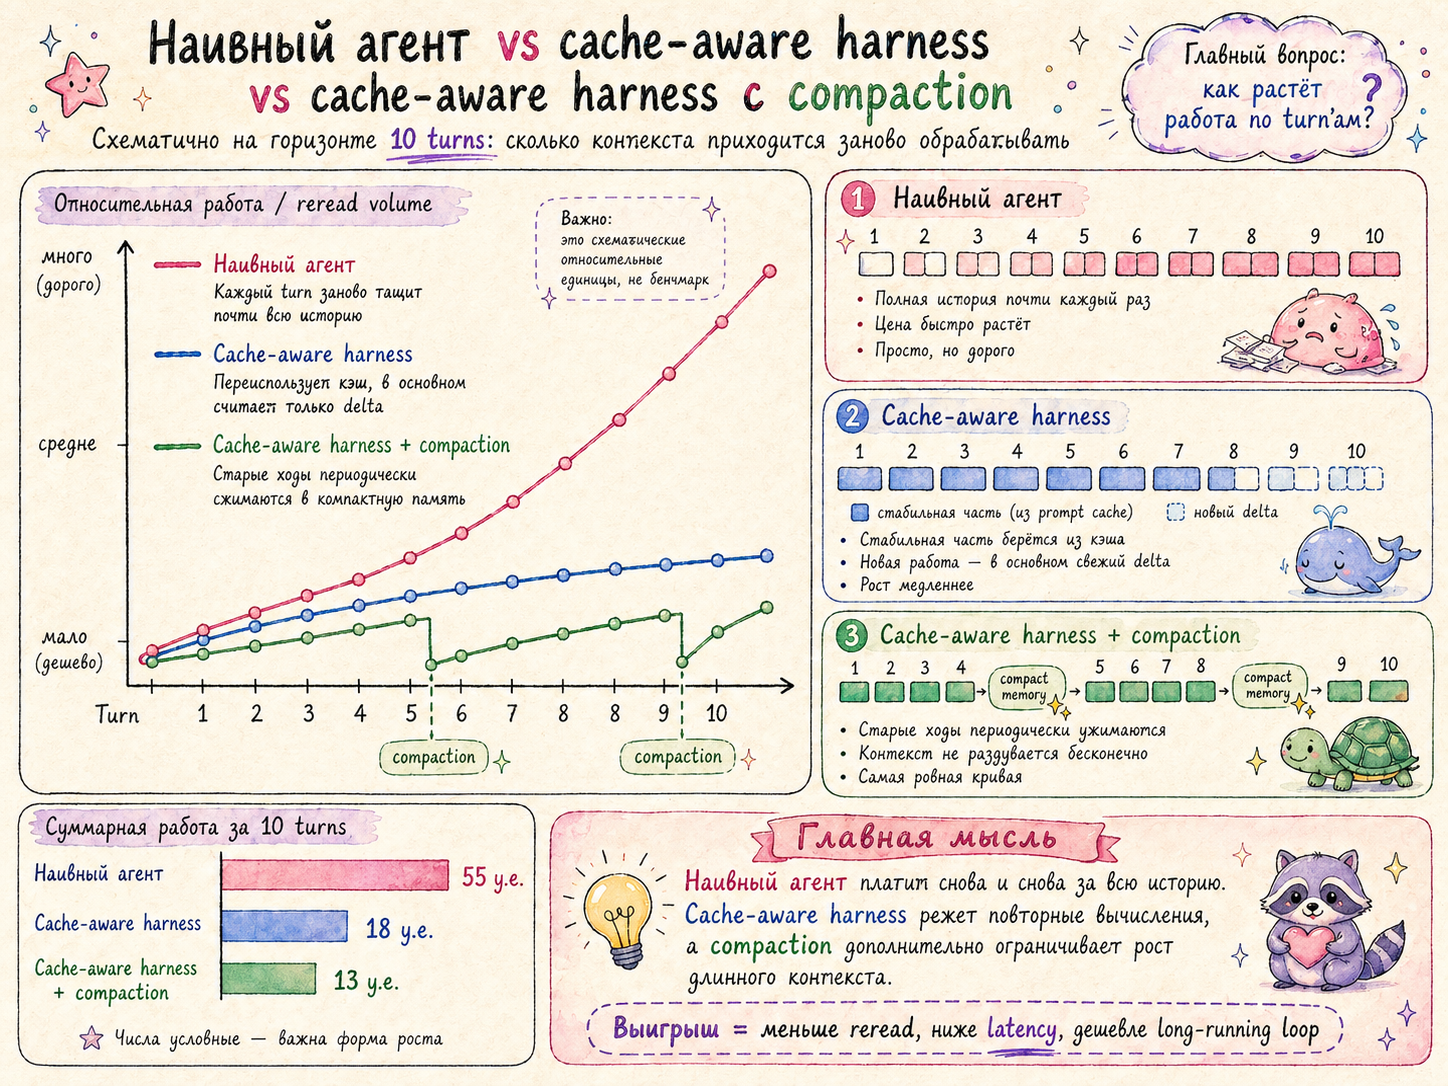 Наивный агент vs cache-aware harness
vs cache-aware harness с compaction
Схематично на горизонте 10 turns: сколько контекста приходится заново обрабатывать
Главный вопрос:
как растёт
работа по turn'ам?
?
Относительная работа / reread volume
много
(дорого)
средне
мало
(дешево)
Наивный агент
Каждый turn заново тащит
почти всю историю
Cache-aware harness
Переиспользует кэш, в основном
считает только delta
Cache-aware harness + compaction
Старые ходы периодически
сжимаются в компактную память
Важно:
это схематические
относительные
единицы, не бенчмарк
Turn 1 2 3 4 5 6 7 8 8 9 10
compaction compaction
1 Наивный агент
1 2 3 4 5 6 7 8 9 10
• Полная история почти каждый раз
• Цена быстро растёт
• Просто, но дорого
2 Cache-aware harness
1 2 3 4 5 6 7 8 9 10
стабильная часть (из prompt cache) новый delta
• Стабильная часть берётся из кэша
• Новая работа — в основном свежий delta
• Рост медленнее
3 Cache-aware harness + compaction
1 2 3 4 5 6 7 8 9 10
compact
memory
compact
memory
• Старые ходы периодически ужимаются
• Контекст не раздувается бесконечно
• Самая ровная кривая
Суммарная работа за 10 turns
Наивный агент 55 у.е.
Cache-aware harness 18 у.е.
Cache-aware harness
+ compaction
13 у.е.
Числа условные — важна форма роста
Главная мысль
Наивный агент платит снова и снова за всю историю.
Cache-aware harness режет повторные вычисления,
а compaction дополнительно ограничивает рост
длинного контекста.
Выигрыш = меньше reread, ниже latency, дешевле long-running loop